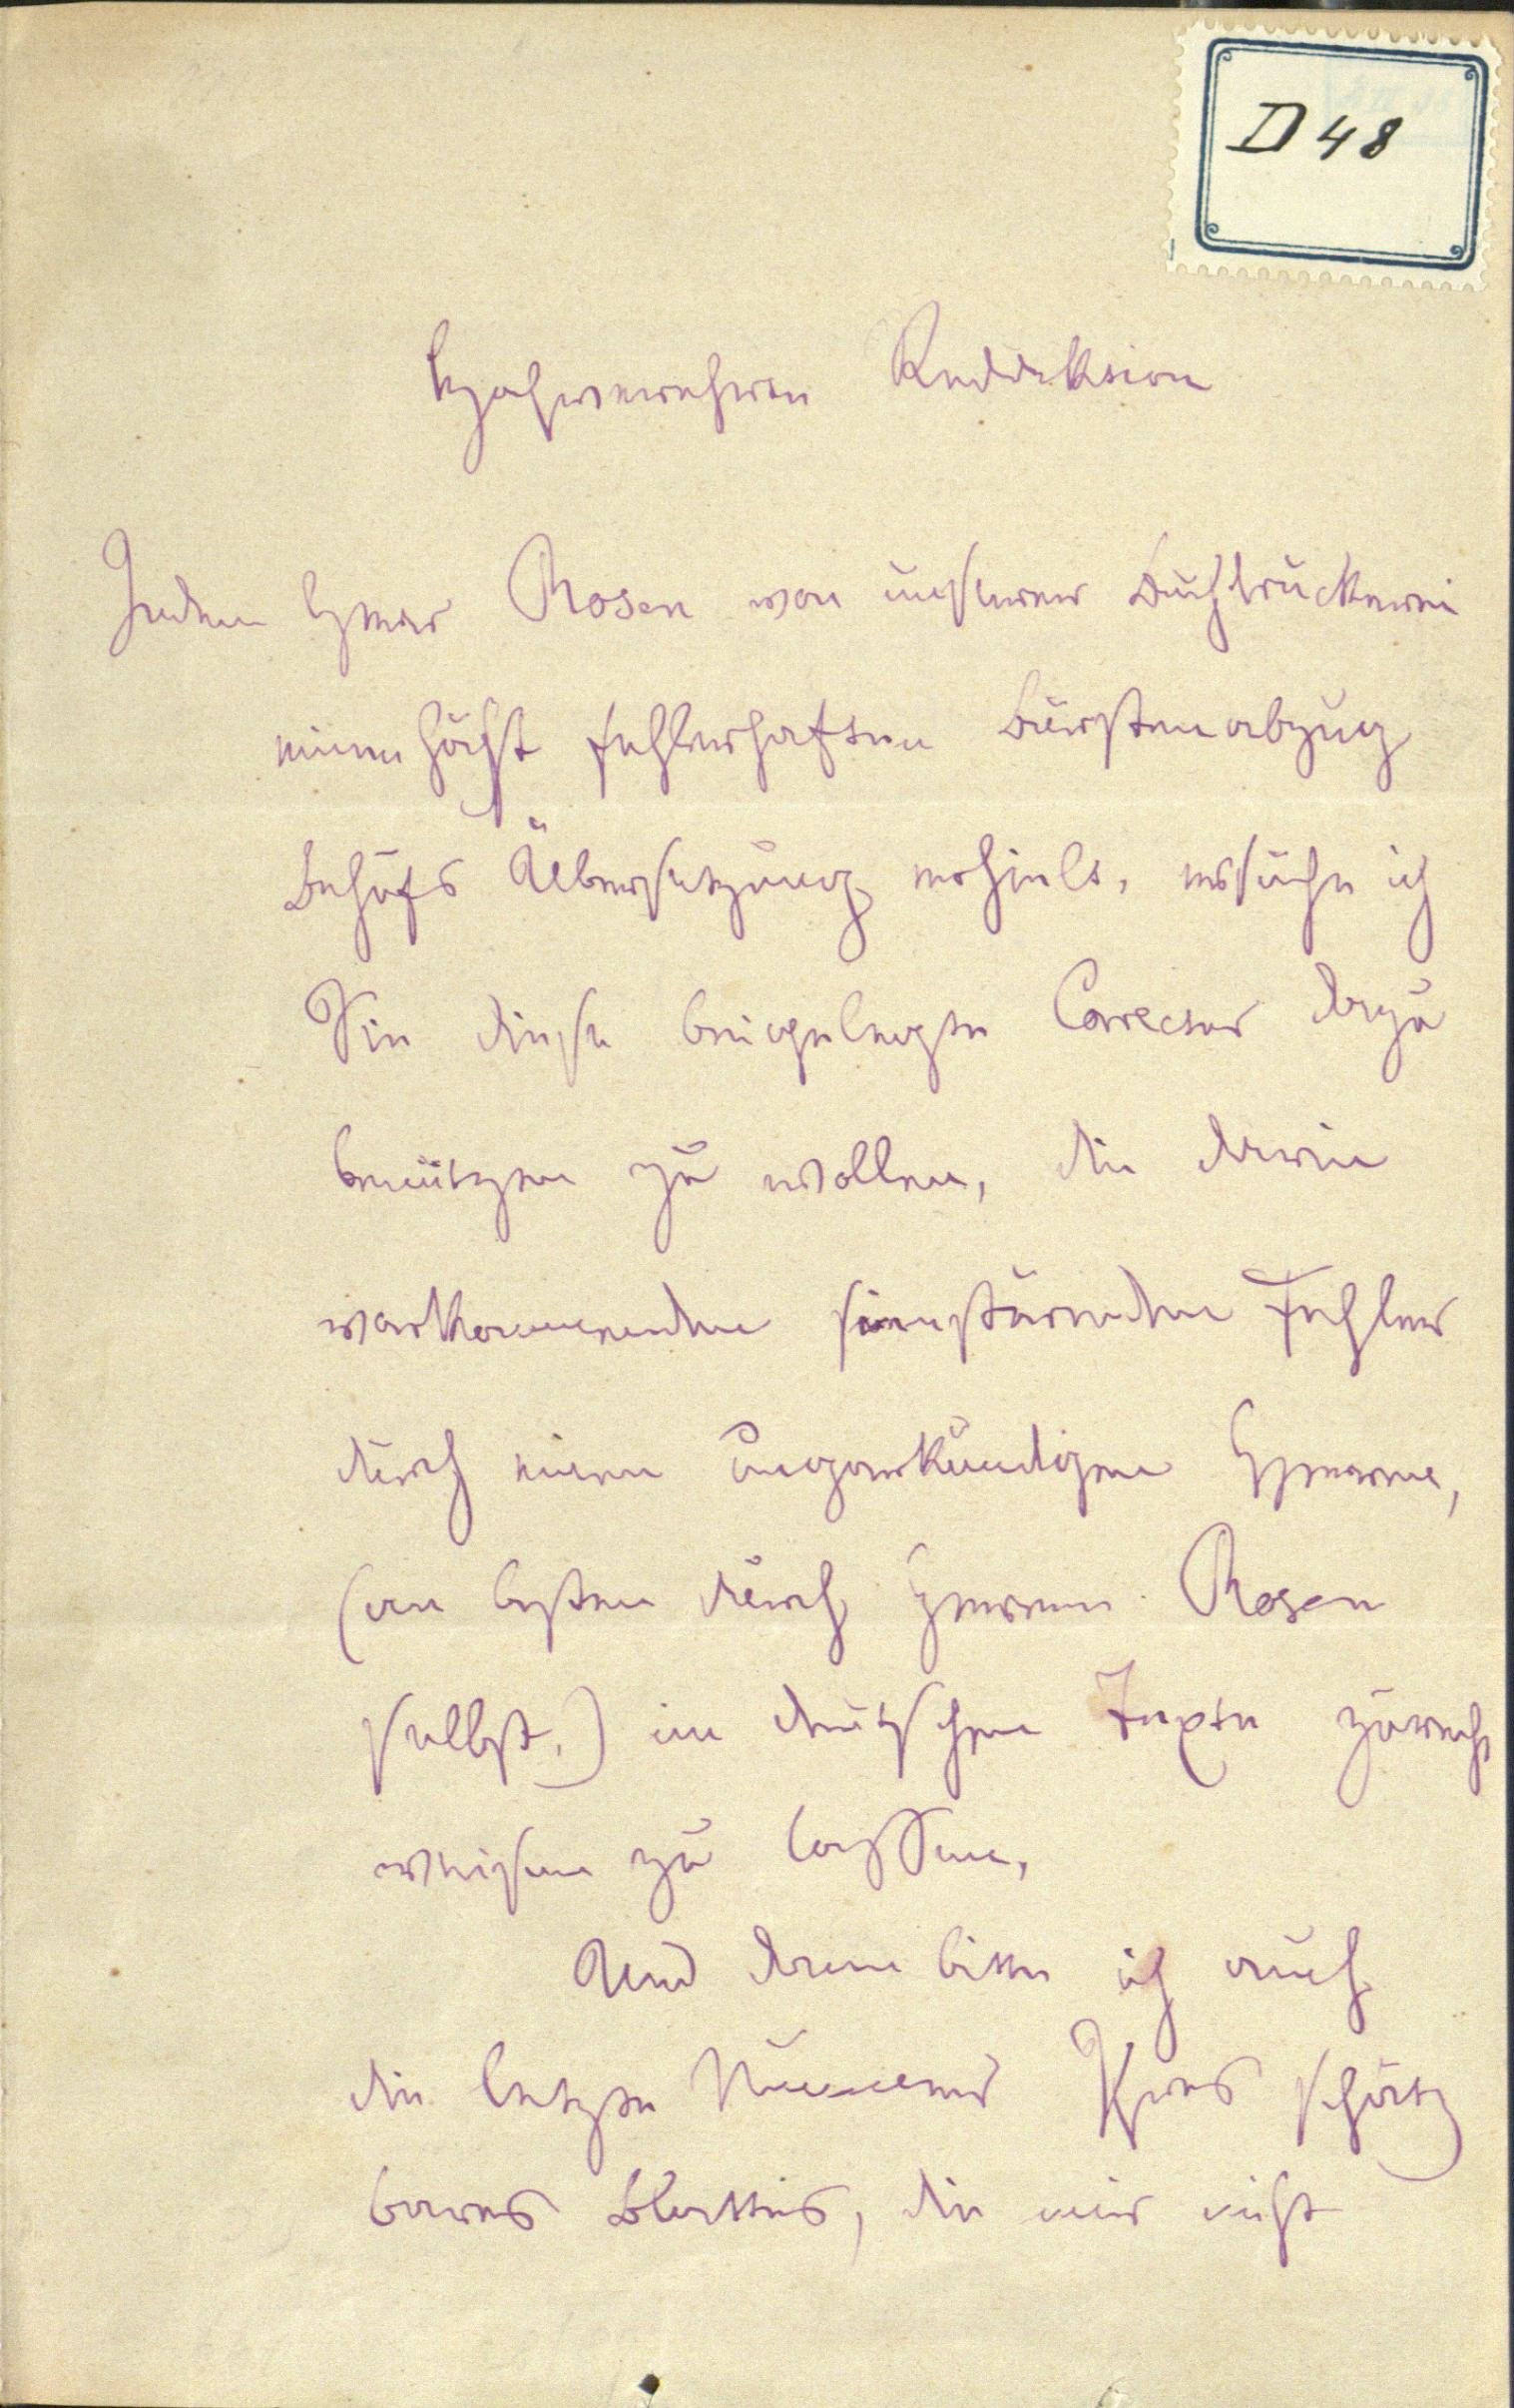 D 48
Hochverehrte Redaktion
Indem Herr Rosen von unserer Buchdruckerei
einen höchst fehlerhaften Bürstenabzug
behufs Uebersetzung erhielt, ersuche ich
Sie diese beigelegte Correctur dazu
benützen zu wollen, die darin
vorkommenden sinnstörenden Fehler
durch einen ungarkundigen Herrn,
(am besten durch Herren Rosen
selbst,) im deutschen Texte zurecht
weisen zu lassen.
Und dann bitte ich auch
die letzte Nummer Ihres schätz
bares Blattes, die mir nicht